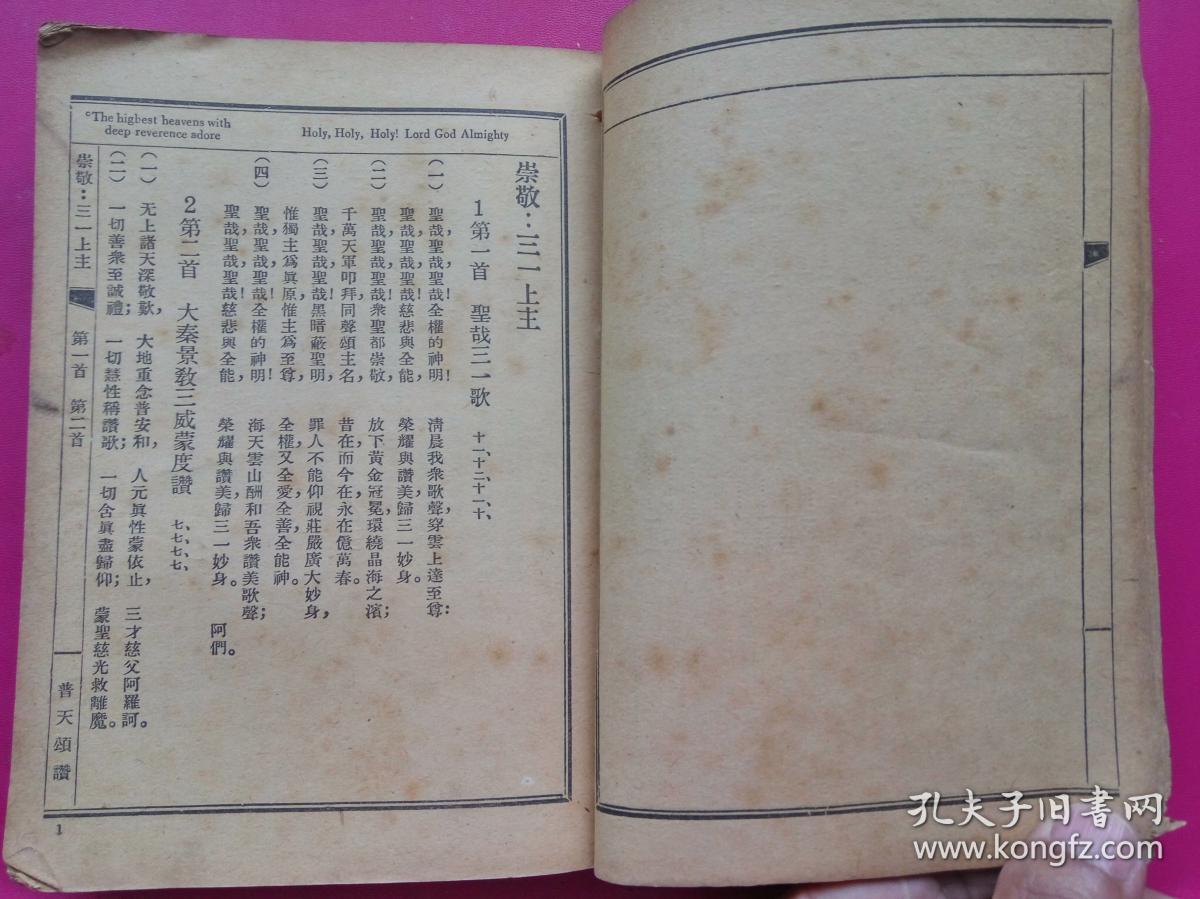 Holy, Holy, Holy! Lord God Almighty
°The highest heavens with
deep reverence adore
崇敬：三一上主
1 第一首 聖哉三一歌 十一、十二、十一、十、
（一） 聖哉，聖哉，聖哉！全權的神明！ 清晨我衆歌聲，穿雲上達至尊：
聖哉，聖哉，聖哉！慈悲與全能， 榮耀與讚美，歸三一妙身。
（二） 聖哉，聖哉，聖哉！衆聖都崇敬， 放下黃金冠冕，環繞晶海之濱；
千萬天軍叩拜，同聲頌主名， 昔在而今在，永在億萬春。
（三） 聖哉，聖哉，聖哉！黑暗蔽聖明， 罪人不能仰視，莊嚴廣大妙身，
惟獨主爲眞原，惟主爲至尊， 全權又全愛，全善，全能神。
（四） 聖哉，聖哉，聖哉！全權的神明！ 海天雲山酬和，吾衆讚美歌聲；
聖哉，聖哉，聖哉！慈悲與全能， 榮耀與讚美，歸三一妙身。 阿們。
2 第二首 大秦景敎三威蒙度讚 七、七、七、七、
（一） 无上諸天深敬歎， 大地重念普安和， 人元眞性蒙依止， 三才慈父阿羅訶。
（二） 一切善衆至誠禮； 一切慧性稱讚歌； 一切含眞盡歸仰； 蒙聖慈光救離魔。
崇敬：三一上主 第一首 第二首 普天頌讚
1
孔夫子旧书网
www.kongfz.com